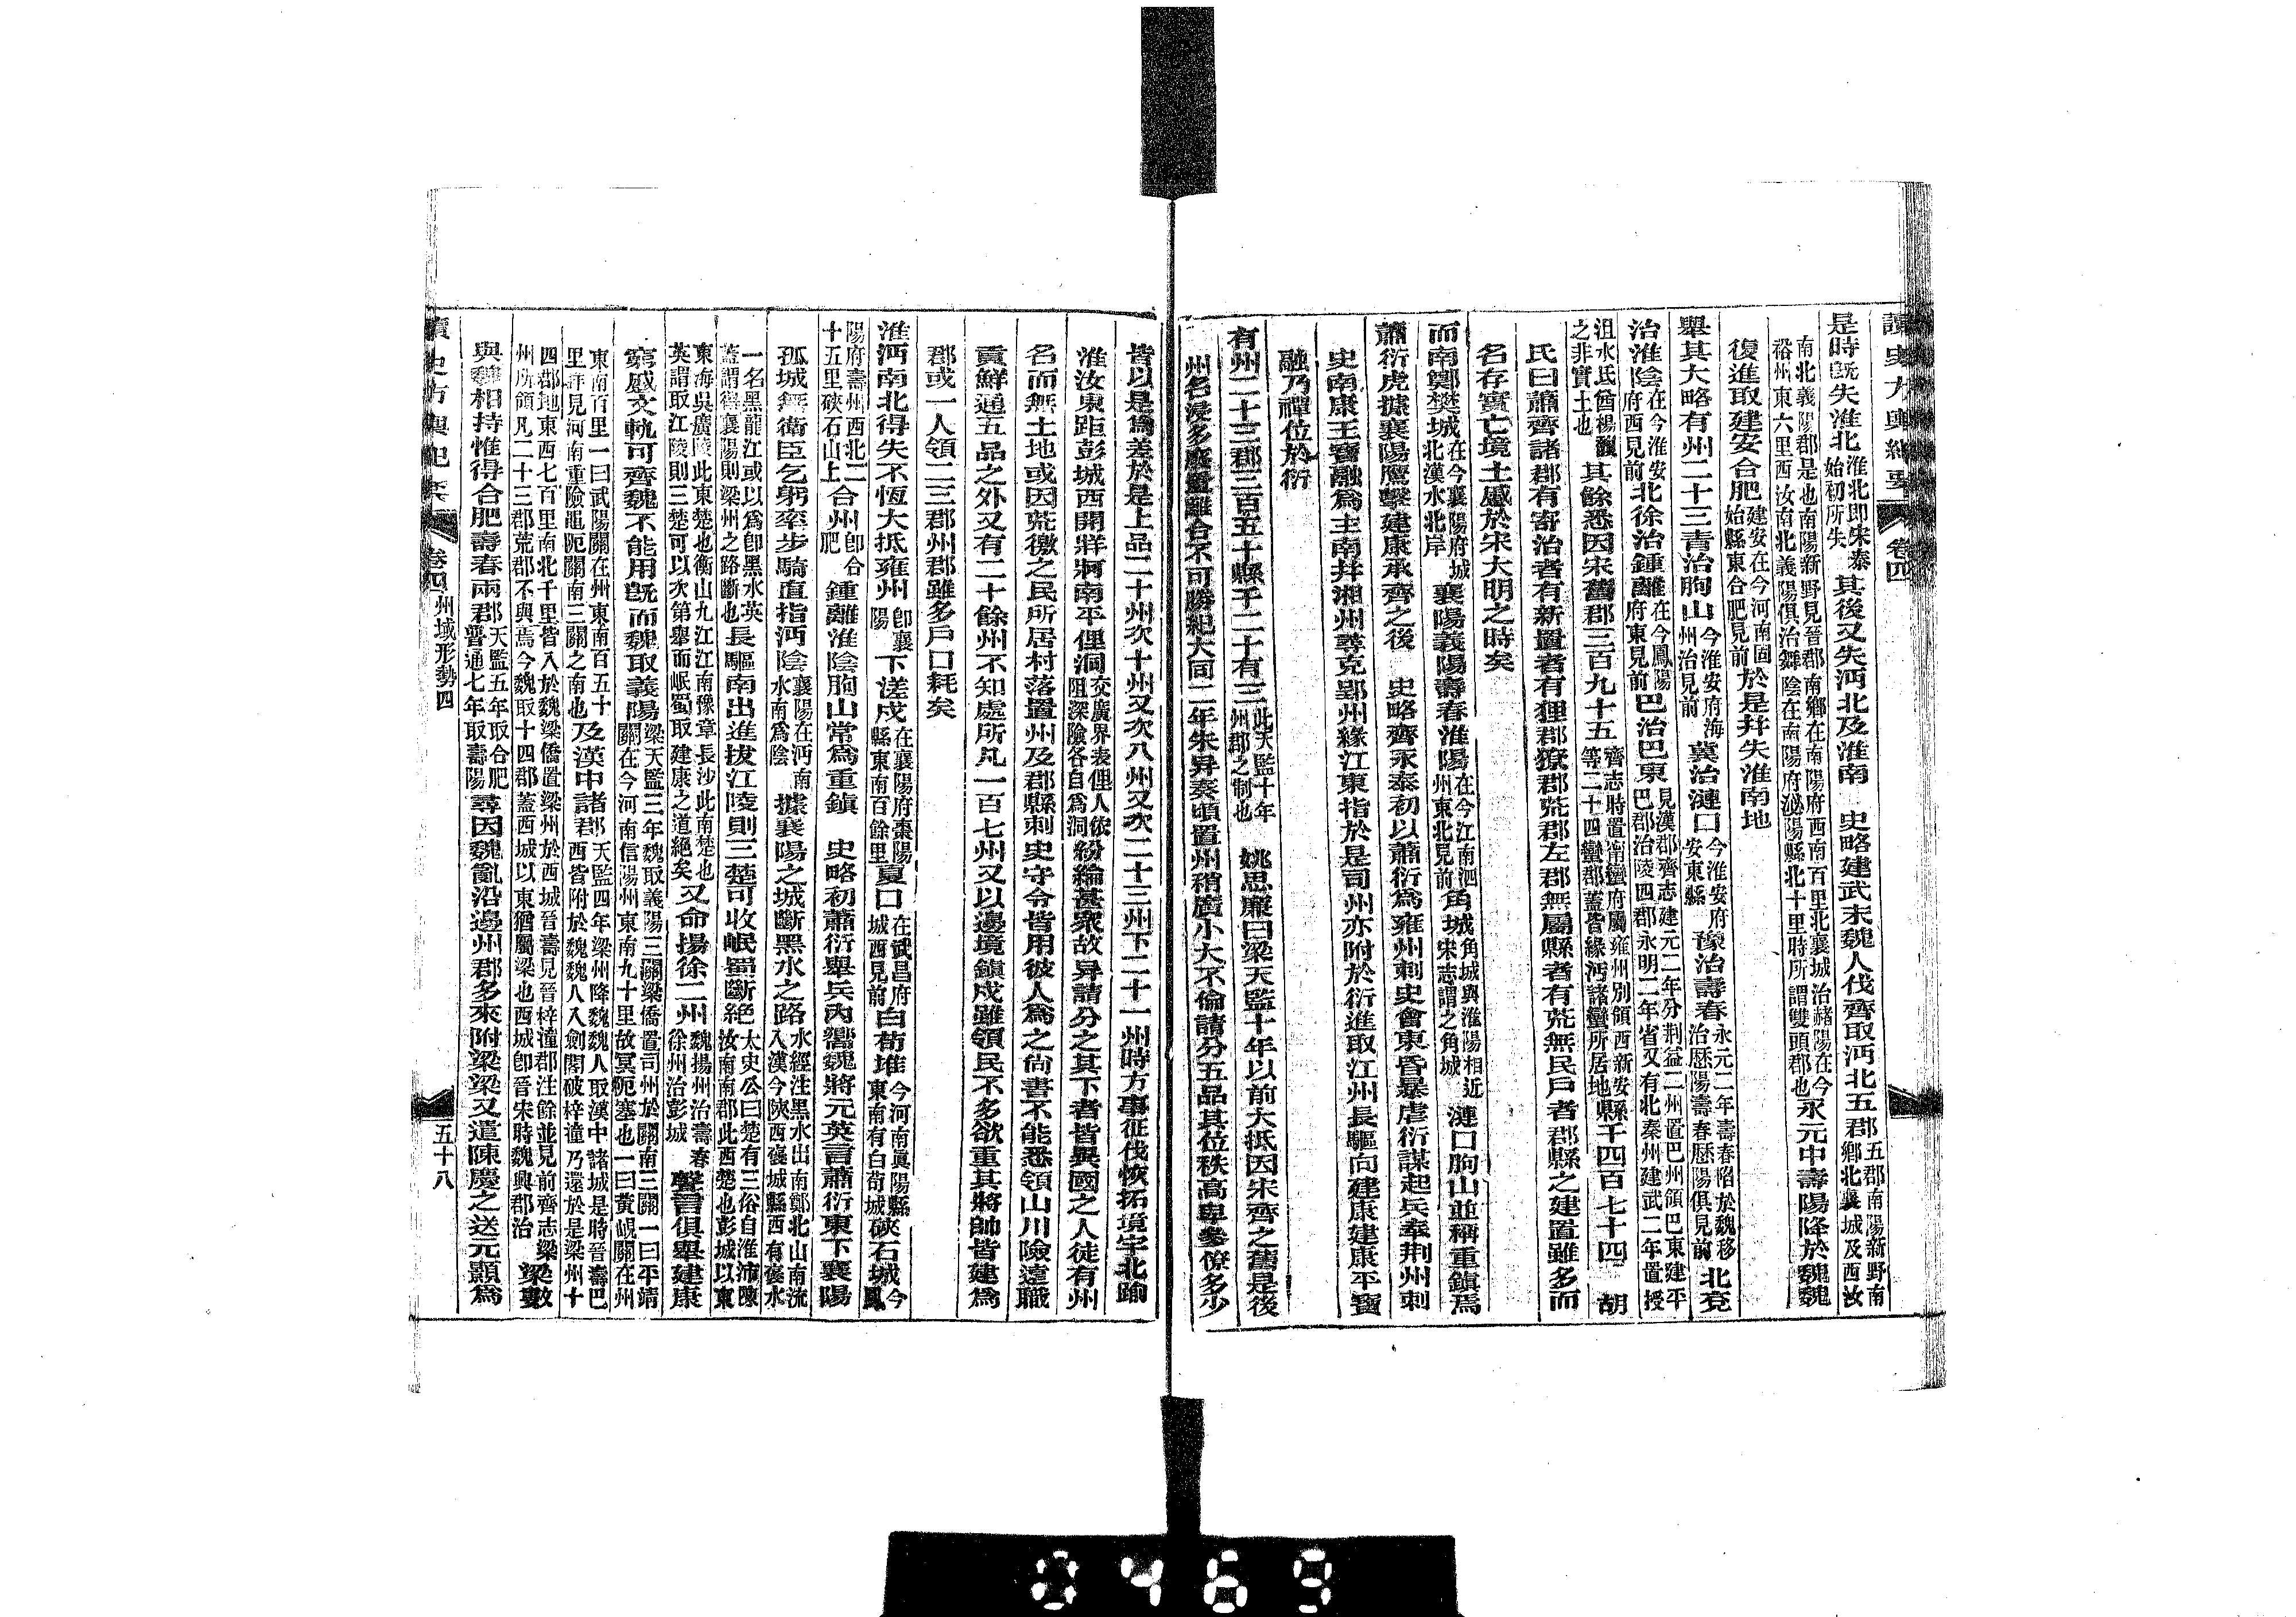 讀史方輿紀要 卷四
是時既失淮北淮北即宋泰始初所失其後又失沔北及淮南 史略建武末魏人伐齊取沔北五郡五郡南陽新野南鄉北襄城及西汝
南北義陽郡是也南陽新野見晉郡南鄉在南陽府西南百里北襄城治赭陽在今裕州東六里西汝南北義陽俱治舞陰在南陽府泌陽縣北十里時所謂雙頭郡也永元中壽陽降於魏魏
復進取建安合肥建安在今河南固始縣東合肥見前於是并失淮南地
舉其大略有州二十三青治朐山今淮安府海州治見前冀治漣口今淮安府安東縣豫治壽春永元二年壽春陷於魏移治歷陽壽春歷陽俱見前北兗
治淮陰在今淮安府西見前北徐治鍾離在今鳳陽府東見前巴治巴東見漢郡齊志建元二年分荆益二州置巴州領巴東建平巴郡治陵四郡永明二年省又有北秦州建武二年置授
沮水氐酋楊馥之非實土也其餘悉因宋舊郡三百九十五齊志時置南蠻府屬雍州別領西新安等二十四蠻郡蓋皆緣沔諸蠻所居地縣千四百七十四 胡
氏曰蕭齊諸郡有寄治者有新置者有狸郡獠郡荒郡左郡無屬縣者有荒無民戶者郡縣之建置雖多而
名存實亡境土蹙於宋大明之時矣
而南鄭樊城在今襄陽府城北漢水北岸襄陽義陽壽春淮陽在今江南泗州東北見前角城角城與淮陽相近宋志謂之角城漣口朐山並稱重鎮焉
蕭衍虎據襄陽鷹擊建康承齊之後 史略齊永泰初以蕭衍爲雍州刺史會東昏暴虐衍謀起兵奉荆州刺
史南康王寶融爲主南并湘州尋克郢州緣江東指於是司州亦附於衍進取江州長驅向建康建康平寶
融乃禪位於衍
有州二十三郡三百五十縣千二十有三此天監十年州郡之制也 姚思廉曰梁天監十年以前大抵因宋齊之舊是後
州名浸多廢置離合不可勝紀大同二年朱异奏頃置州稍廣小大不倫請分五品其位秩高卑參僚多少
皆以是爲差於是上品二十州次十州又次八州又次二十三州下二十一州時方事征伐恢拓境宇北踰
淮汝東距彭城西開牂牁南平俚洞交廣界表俚人依阻深險各自爲洞紛綸甚衆故异請分之其下者皆異國之人徒有州
名而無土地或因荒徼之民所居村落置州及郡縣刺史守令皆用彼人爲之尚書不能悉領山川險遠職
貢鮮通五品之外又有二十餘州不知處所凡一百七州又以邊境鎮戍雖領民不多欲重其將帥皆建爲
郡或一人領二三郡州郡雖多戶口耗矣
淮沔南北得失不恆大抵雍州即襄陽下溠戍在襄陽府棗陽縣東南百餘里夏口在武昌府城西見前白苟堆今河南眞陽縣東南有白苟城硤石城今鳳
陽府壽州西北二十五里硤石山上合州即合肥鍾離淮陰朐山常爲重鎮 史略初蕭衍舉兵內嚮魏將元英言蕭衍東下襄陽
孤城無衛臣乞躬率步騎直指沔陰襄陽在沔南水南爲陰據襄陽之城斷黑水之路水經注黑水出南鄭北山南流入漢今陝西襃城縣西有襃水
一名黑龍江或以爲即黑水英蓋謂得襄陽則梁州之路斷也長驅南出進拔江陵則三楚可收岷蜀斷絕太史公曰楚有三俗自淮沛陳汝南南郡此西楚也彭城以東
東海吳廣陵此東楚也衡山九江江南豫章長沙此南楚也英謂取江陵則三楚可以次第舉而岷蜀取建康之道絕矣又命揚徐二州魏揚州治壽春徐州治彭城聲言俱舉建康
窮蹙文軌可齊魏不能用既而魏取義陽梁天監三年魏取義陽三關梁僑置司州於關南三關一曰平靖關在今河南信陽州東南九十里故冥阨塞也一曰黃峴關在州
東南百里一曰武陽關在州東南百五十里詳見河南重險黽阨關南三關之南也及漢中諸郡天監四年梁州降魏魏人取漢中諸城是時晉壽巴西皆附於魏魏人入劍閣破梓潼乃還於是梁州十
四郡地東西七百里南北千里皆入於魏梁僑置梁州於西城晉壽見晉梓潼郡注餘並見前齊志梁州所領凡二十三郡荒郡不與焉今魏取十四郡蓋西城以東猶屬梁也西城即晉宋時魏興郡治 梁數
與魏相持惟得合肥壽春兩郡天監五年取合肥普通七年取壽陽尋因魏亂沿邊州郡多來附梁梁又遣陳慶之送元顥爲
讀史方輿紀要 卷四 州域形勢四 五十八
0469